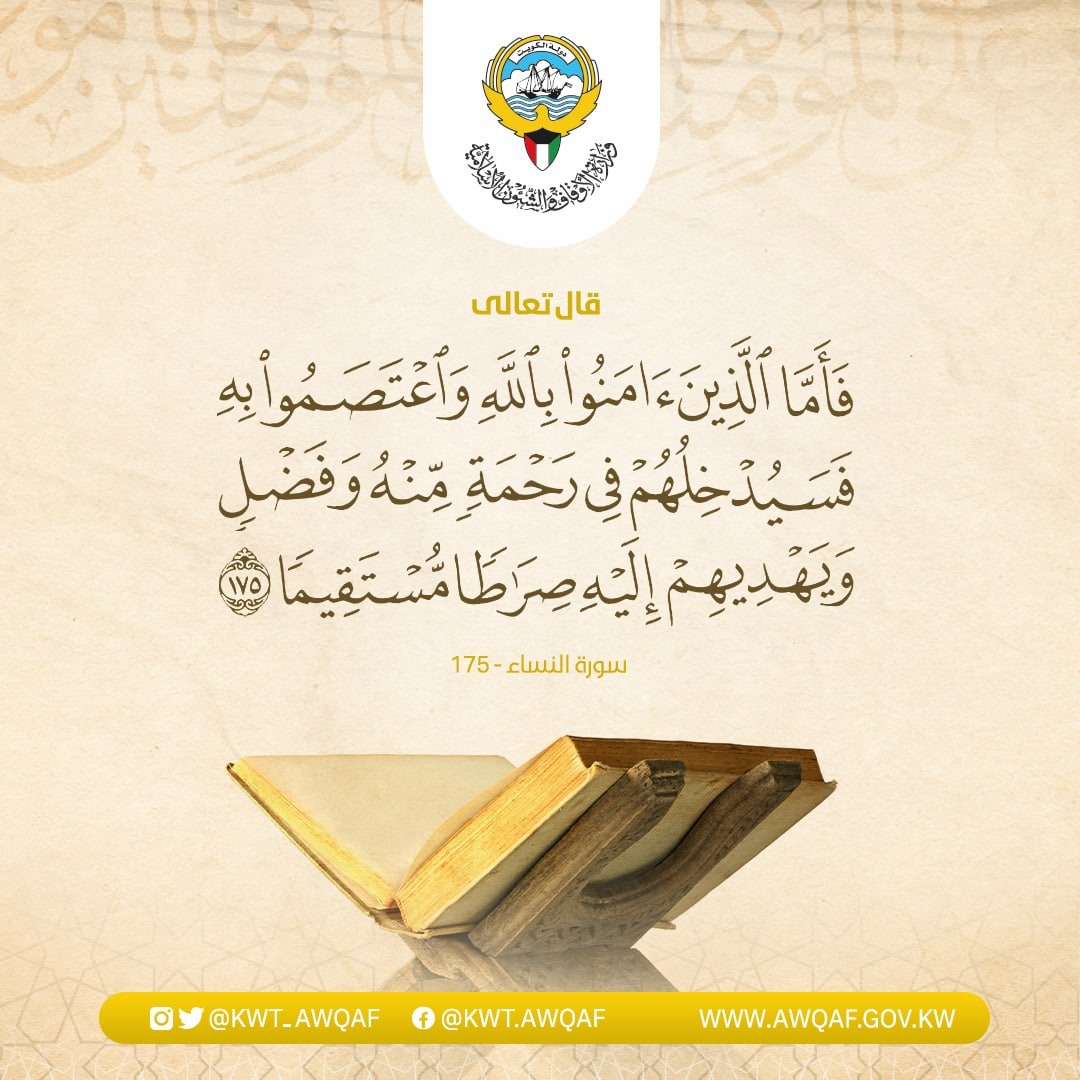 دولة الكويت
وزارة الأوقاف والشئون الإسلامية
قال تعالى
فَأَمَّا ٱلَّذِينَ ءَامَنُواْ بِٱللَّهِ وَٱعۡتَصَمُواْ بِهِۦ
فَسَيُدۡخِلُهُمۡ فِي رَحۡمَةٖ مِّنۡهُ وَفَضۡلٖ
وَيَهۡدِيهِمۡ إِلَيۡهِ صِرَٰطٗا مُّسۡتَقِيمٗا ١٧٥
سورة النساء - 175
@KWT_AWQAF @KWT.AWQAF WWW.AWQAF.GOV.KW